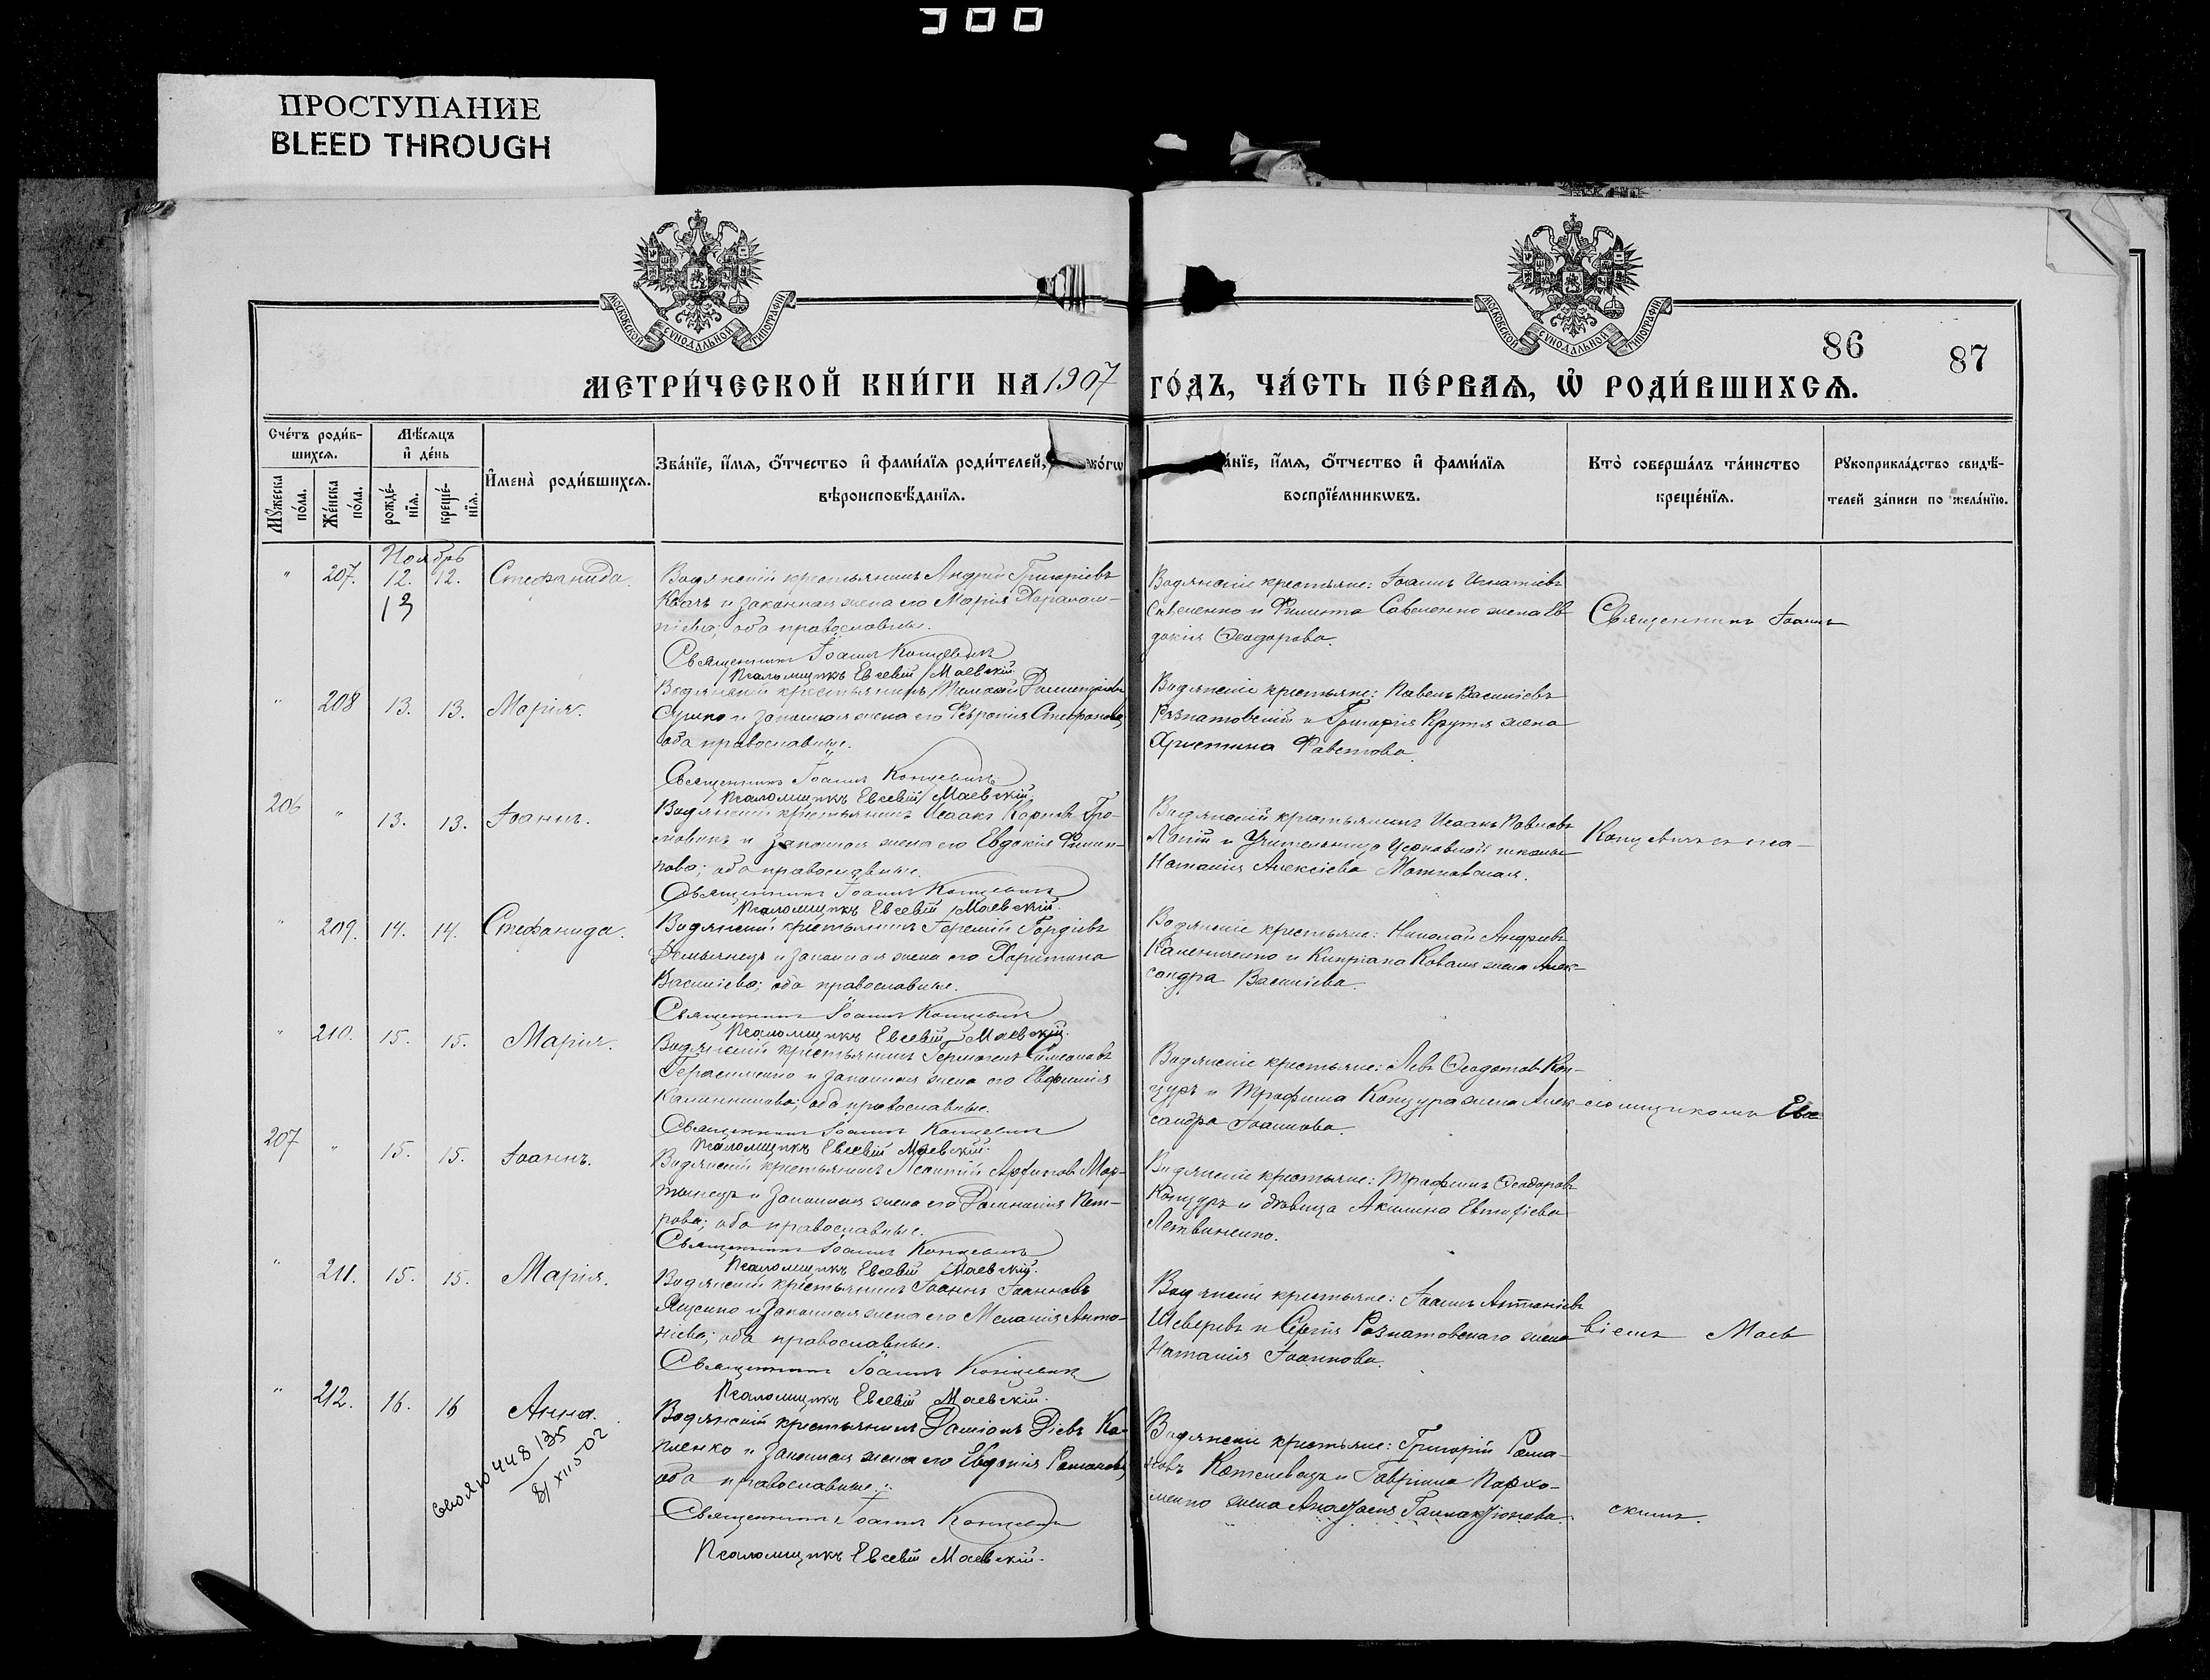 300
ПРОСТУПАНИЕ
BLEED THROUGH
МОСКОВСКОЙ СУНОДАЛЬНОЙ ТИПОГРАФІИ
МОСКОВСКОЙ СУНОДАЛЬНОЙ ТИПОГРАФІИ
86
87
МЕТРИ́ЧЕСКОЙ КНИ́ГИ НА 1907 ГО́ДЪ, ЧА́СТЬ ПЕ́РВАѦ, Ѡ҆ РОДИ́ВШИХСѦ.
Сче́тъ роди́в-
шихсѧ.
Мꙋ́жеска по́ла.
Же́нска по́ла.
Мѣ́сѧцъ
и҆ де́нь
рожде́-
нїѧ.
креще́-
нїѧ.
И҆мена̀ роди́вшихсѧ.
Зва́нїе, и҆́мѧ, ѻ҆́тчество и҆ фами́лїѧ роди́телей,
вѣроисповѣ́данїѧ.
а́нїе, и҆́мѧ, ѻ҆́тчество и҆ фами́лїѧ
воспрїе́мникѡвъ.
Кто̀ соверша́лъ та́инство
креще́нїѧ.
Рꙋкоприкла́дство свидѣ́-
телей за́писи по жела́нїю.
Ноябрь
" 207. 12. 12. Стефанида.
13
Водянскій крестьянинъ Андрей Григоріевъ
Квачъ и законная жена его Марія Харалам-
піева; оба православные.
Священникъ Іоаннъ Концевичъ
Псаломщикъ Евсевій Маевскій.
Водянскіе крестьяне: Іоаннъ Игнатіевъ
Савченко и Филиппа Савченко жена Ев-
докія Ѳеодорова.
Священникъ Іоаннъ
" 208 13. 13. Марія.
Водянскій крестьянинъ Димитріевъ
и законная жена его Февронія Стефанова,
оба православные.
Священникъ Іоаннъ Концевичъ
Псаломщикъ Евсевій Маевскій.
Водянскіе крестьяне: Павелъ Василіевъ
Розматовскій и Григорія Крутя жена
Христина
206 " 13. 13. Іоаннъ.
Водянскій крестьянинъ Исаакъ Карповъ Гро-
и законная жена его Евдокія Филип-
пова; оба православные.
Священникъ Іоаннъ Концевичъ
Псаломщикъ Евсевій Маевскій.
Водянскій крестьянинъ Исаакъ Павловъ
и Учительница Церковной школы
Наталія Алексіева
Концевичъ съ пса-
" 209. 14. 14. Стефанида.
Водянскій крестьянинъ Гордіевъ
Демьянецъ и законная жена его Харитина
Василіева; оба православные.
Священникъ Іоаннъ Концевичъ
Псаломщикъ Евсевій Маевскій.
Водянскіе крестьяне: Николай Андреевъ
Калениченко и Кипріана Коваля жена Алек-
сандра Василіева.
" 210. 15. 15. Марія.
Водянскій крестьянинъ Гермогенъ Симеоновъ
Герасименко и законная жена его Евфимія
Каллиникова; оба православные.
Священникъ Іоаннъ Концевичъ
Псаломщикъ Евсевій Маевскій.
Водянскіе крестьяне: Левъ Ѳеодотовъ Кон-
цуръ и Трофима Концура жена Алек-
сандра Іоаннова.
ломщикомъ Евсе-
207 " 15. 15. Іоаннъ.
Водянскій крестьянинъ Леонтій Архиповъ Мар-
тынецъ и законная жена его Домникія Пет-
рова; оба православные.
Священникъ Іоаннъ Концевичъ
Псаломщикъ Евсевій Маевскій.
Водянскіе крестьяне: Трофимъ Ѳеодоровъ
Концуръ и дѣвица Акилина Евтихіева
Летвиненко.
" 211. 15. 15. Марія.
Водянскій крестьянинъ Іоаннъ Іоанновъ
Яценко и законная жена его Меланія Анто-
ніева; оба православные.
Священникъ Іоаннъ Концевичъ
Псаломщикъ Евсевій Маевскій.
Водянскіе крестьяне: Іоаннъ Антоніевъ
Шеверевъ и Сергія Розматовскаго жена
Наталія Іоаннова.
віемъ Маев
" 212. 16. 16 Анна.
Водянскій крестьянинъ Даміанъ Діевъ Ка-
пленко и законная жена его Евдокія Романова,
оба православные.
Священникъ Іоаннъ Концевичъ
Псаломщикъ Евсевій Маевскій.
Водянскіе крестьяне: Григорій Рома-
новъ Котелевецъ и Гавріила Пархо-
менко жена Анастасія Галактіонова.
скимъ.